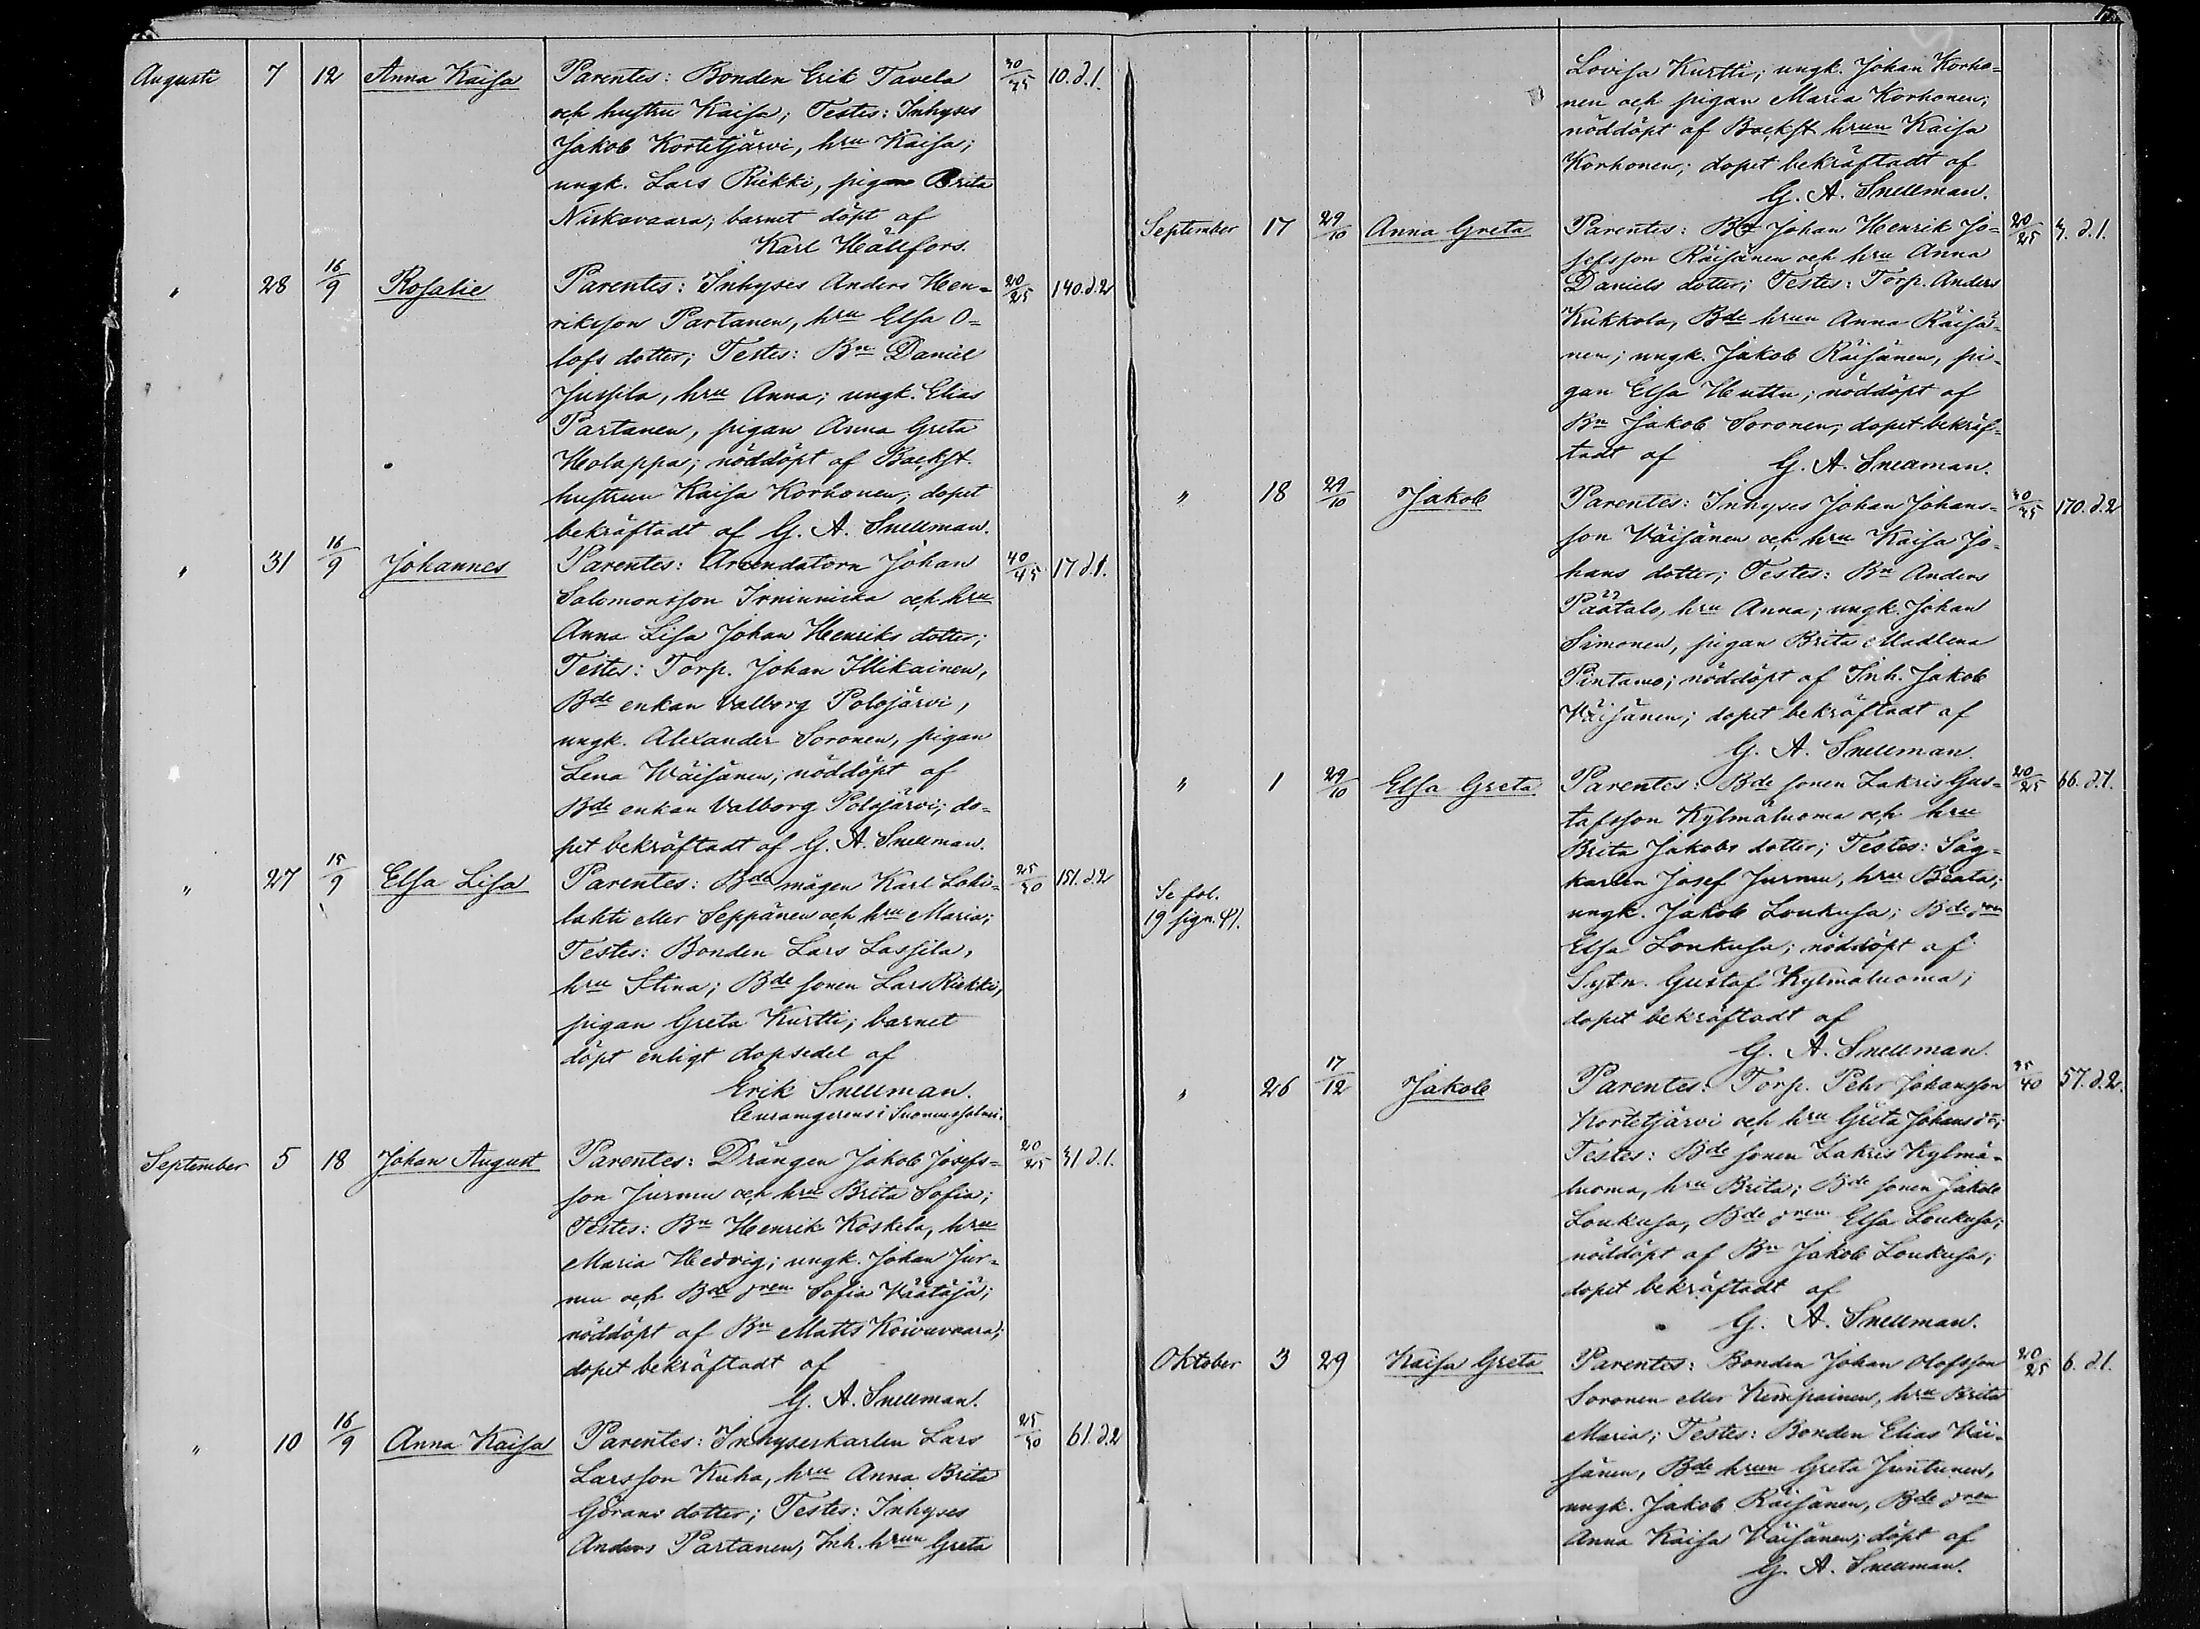 15.
Augusti 7 12 Anna Kaisa Parentes: Bonden Erik Tavela 30/35 10.d.1.
och hustru Kaisa; Testes: Inhyses
Jakob Kortetjärvi, hru Kaisa;
ungk. Lars Riekki, pigan Brita
Niskavaara; barnet döpt af
Karl Hällfors.
" 28 16/9 Rosalie Parentes: Inhyses Anders Hen-
riksson Partanen, hru Elsa O- 20/25 140.d.2
lofs dotter; Testes: Bn Daniel
Jussila, hru Anna; ungk. Elias
Partanen, pigan Anna Greta
Holappa; nöddöpt af Backst.
hustrun Kaisa Korhonen; dopet
bekräftadt af G. A. Snellman.
" 31 16/9 Johannes Parentes: Arrendatorn Johan 40/45 17 d.1.
Salomonsson Irninniska och hru
Anna Lisa Johan Henriks dotter;
Testes: Torp. Johan Illikainen,
Bde enkan Valborg Polojärvi,
ungk. Alexander Soronen, pigan
Lena Wäisänen; nöddöpt af
Bde enkan Valborg Polojärvi; do-
pet bekräftadt af G. A. Snellman.
" 27 15/9 Elsa Lisa Parentes: Bde mågen Karl Lohi- 25/30 151.d.2
lahti eller Seppänen och hru Maria;
Testes: Bonden Lars Lassila,
hru Stina; Bde sonen Lars Riekki,
pigan Greta Kurtti; barnet
döpt enligt dopsedel af
Erik Snellman.
Curamgerens i Suomussalmi.
September 5 18 Johan August Parentes: Drängen Jakob Josefs- 20/25 31 d.1.
son Jurmu och hru Brita Sofia;
Testes: Bn Henrik Koskela, hru
Maria Hedvig; ungk. Johan Jur-
mu och Bde dren Sofia Väätäjä;
nöddöpt af Bn Matts Koivuvaara;
dopet bekräftadt af
G. A. Snellman.
" 10 16/9 Anna Kaisa Parentes: Inhyseskarlen Lars 25/30 61.d.2
Larsson Kuha, hru Anna Brita
Görans dotter; Testes: Inhyses
Anders Partanen, Inh. hrun Greta
Lovisa Kurtti; ungk. Johan Korho-
nen och pigan Maria Korhonen;
nöddöpt af Backst hrun Kaisa
Korhonen; dopet bekräftadt af
G. A. Snellman.
September 17 29/10 Anna Greta Parentes: Bn Johan Henrik Jo- 20/25 3. d.1.
sefsson Räisänen och hru Anna
Daniels dotter; Testes: Torp. Anders
Kukkola, Bde hrun Anna Räisä-
nen; ungk. Jakob Räisänen, pi-
gan Elsa Huttu; nöddöpt af
Bn Jakob Soronen; dopet bekräf-
tadt af G. A. Snellman.
" 18 29/10 Jakob Parentes: Inhyses Johan Johans- 30/35 170.d.2
son Väisänen och hru Kaisa Jo-
hans dotter; Testes: Bn Anders
Päätalo, hru Anna; ungk. Johan
Simonen, pigan Brita Madlena
Pintamo; nöddöpt af Inh. Jakob
Väisänen; dopet bekräftadt af
G. A. Snellman.
" 1 29/10 Elsa Greta Parentes: Bde sonen Zakris Gus- 20/25 66. d.1.
tafsson Kylmäluoma och hru
Brita Jakobs dotter; Testes: Såg-
Se fol. karlen Josef Jurmu, hru Beata;
19 sign. ungk. Jakob Loukusa; Bde dren
Elsa Loukusa; nöddöpt af
Sytn. Gustaf Kylmäluoma;
dopet bekräftadt af
G. A. Snellman.
" 26 17/12 Jakob Parentes: Torp. Pehr Johansson 35/40 57.d.2.
Kortetjärvi och hru Greta Johans dr;
Testes: Bde sonen Zakris Kylmä-
luoma, hru Brita; Bde sonen Jakob
Loukusa, Bde dren Elsa Loukusa;
nöddöpt af Bn Jakob Loukusa;
dopet bekräftadt af
G. A. Snellman.
Oktober 3 29 Kaisa Greta Parentes: Bonden Johan Olofsson 20/25 6. d.1.
Soronen eller Kempainen, hru Brita
Maria; Testes: Bonden Elias Väi-
sänen, Bde hrun Greta Juntunen,
ungk. Jakob Räisänen, Bde dren
Anna Kaisa Väisänen; döpt af
G. A. Snellman.